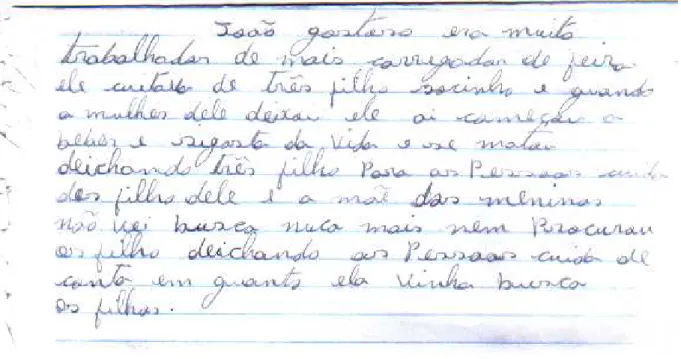 João gostoso era muito
trabalhador de mais carregador de feira
ele cuidava de três filho socinho e quando
a mulher dele deixou ele ai começou a
beber e disgosto da vida e se matou
deichando três filho Para as Pessoas cuida
dos filho dele e a mãe das meninas
não vei busca nuca mais nem Procurou
os filho deichando as Pessoas cuida de
conta em quanto ela vinha busca
os filhos.